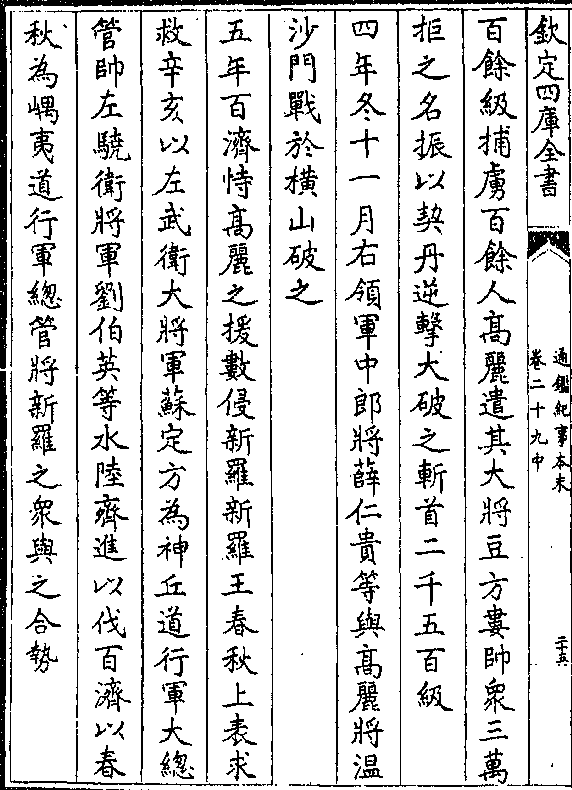 欽定四庫全書
通鑑紀事本末
卷二十九中
二十五
百餘級捕虜百餘人髙麗遣其大將豆方婁帥衆三萬
拒之名振以契丹逆擊大破之斬首二千五百級
四年冬十一月右領軍中郎將薛仁貴等與髙麗將温
沙門戰於橫山破之
五年百濟恃髙麗之援數侵新羅新羅王春秋上表求
救辛亥以左武衛大將軍蘇定方為神丘道行軍大總
管帥左驍衛將軍劉伯英等水陸齊進以伐百濟以春
秋為嵎夷道行軍總管將新羅之衆與之合勢